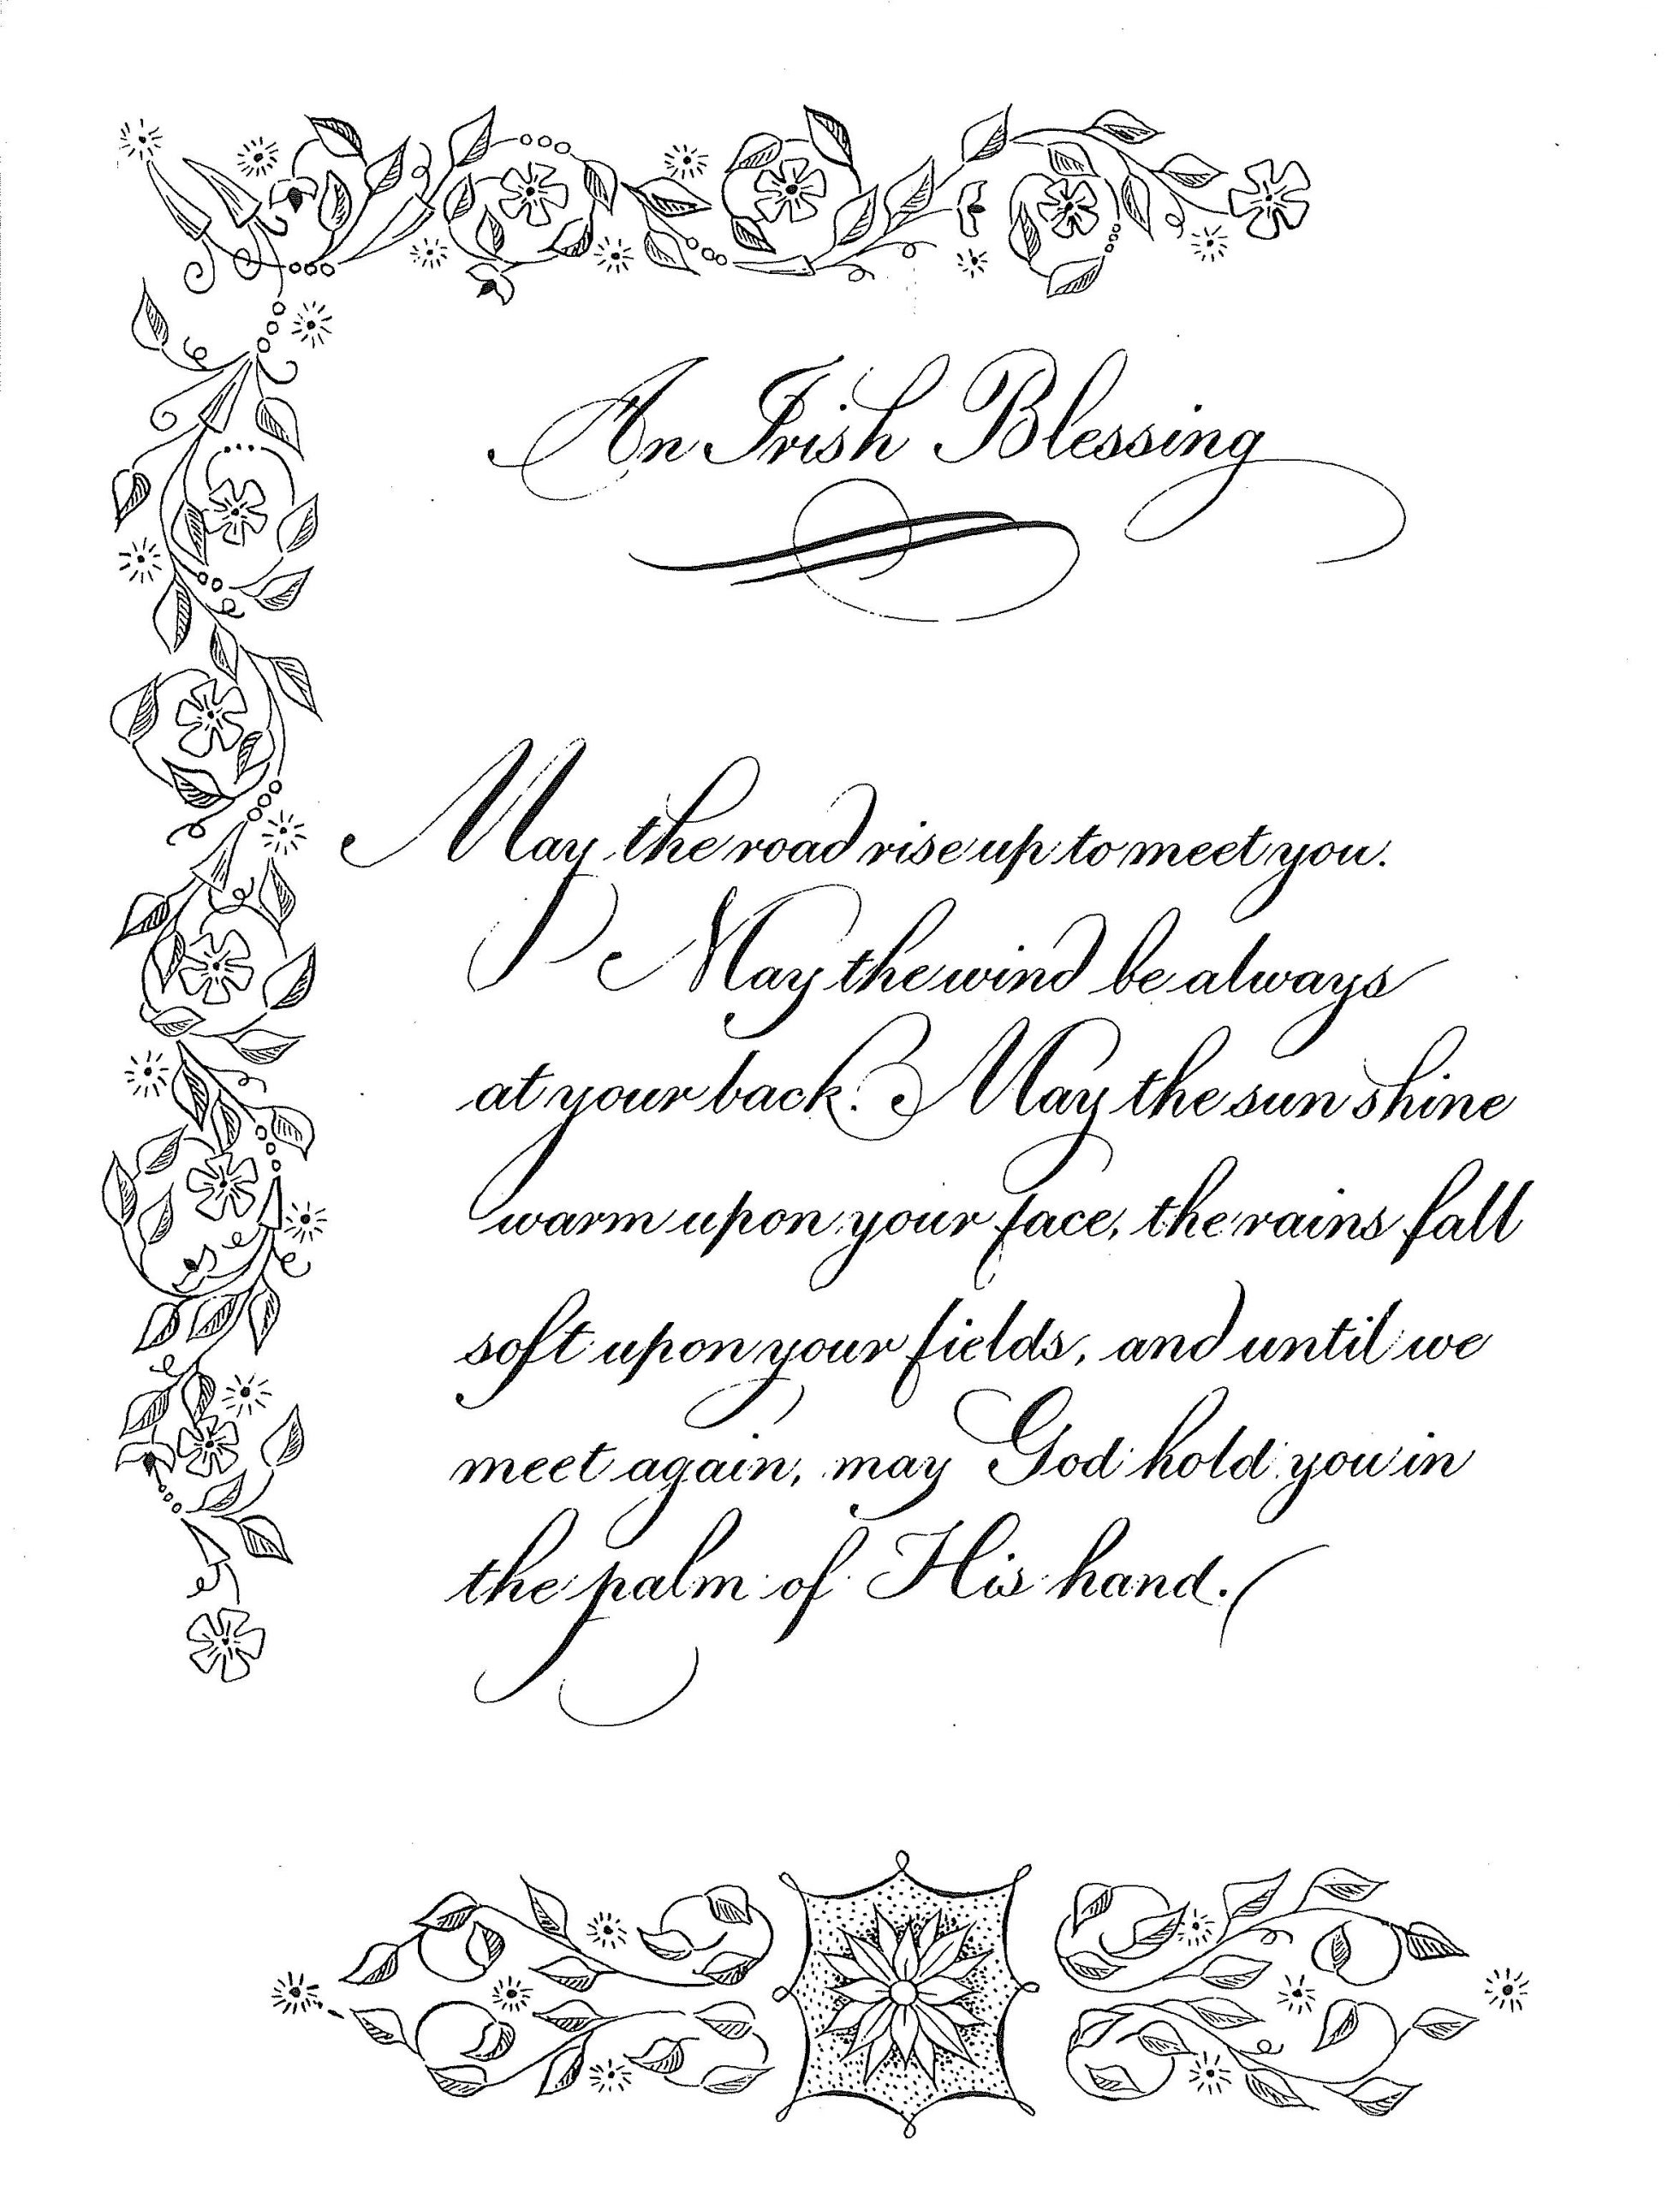 An Irish Blessing
May the road rise up to meet you.
May the wind be always
at your back. May the sun shine
warm upon your face, the rains fall
soft upon your fields, and until we
meet again, may God hold you in
the palm of His hand.